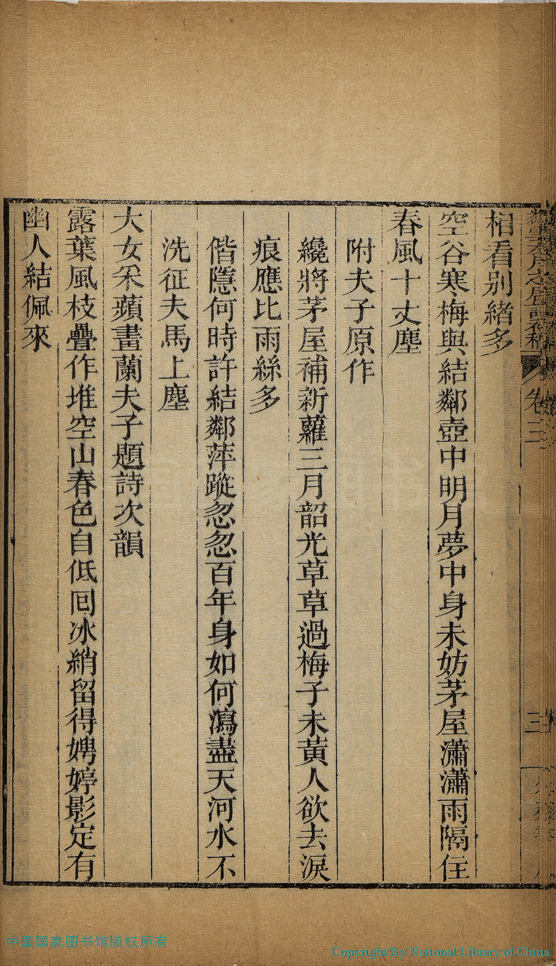 相看別緒多
空谷寒梅與結鄰壺中明月夢中身未妨茅屋瀟瀟雨隔住
春風十丈塵
附夫子原作
纔將茅屋補新蘿三月韶光草草過梅子未黃人欲去淚
痕應比雨絲多
偕隱何時許結鄰萍蹤忽忽百年身如何瀉盡天河水不
洗征夫馬上塵
大女采蘋畫蘭夫子題詩次韻
露葉風枝疊作堆空山春色自低回冰綃留得娉婷影定有
幽人結佩來
卷三
三
中國國家图书馆版权所有
Copyright by National Library of China